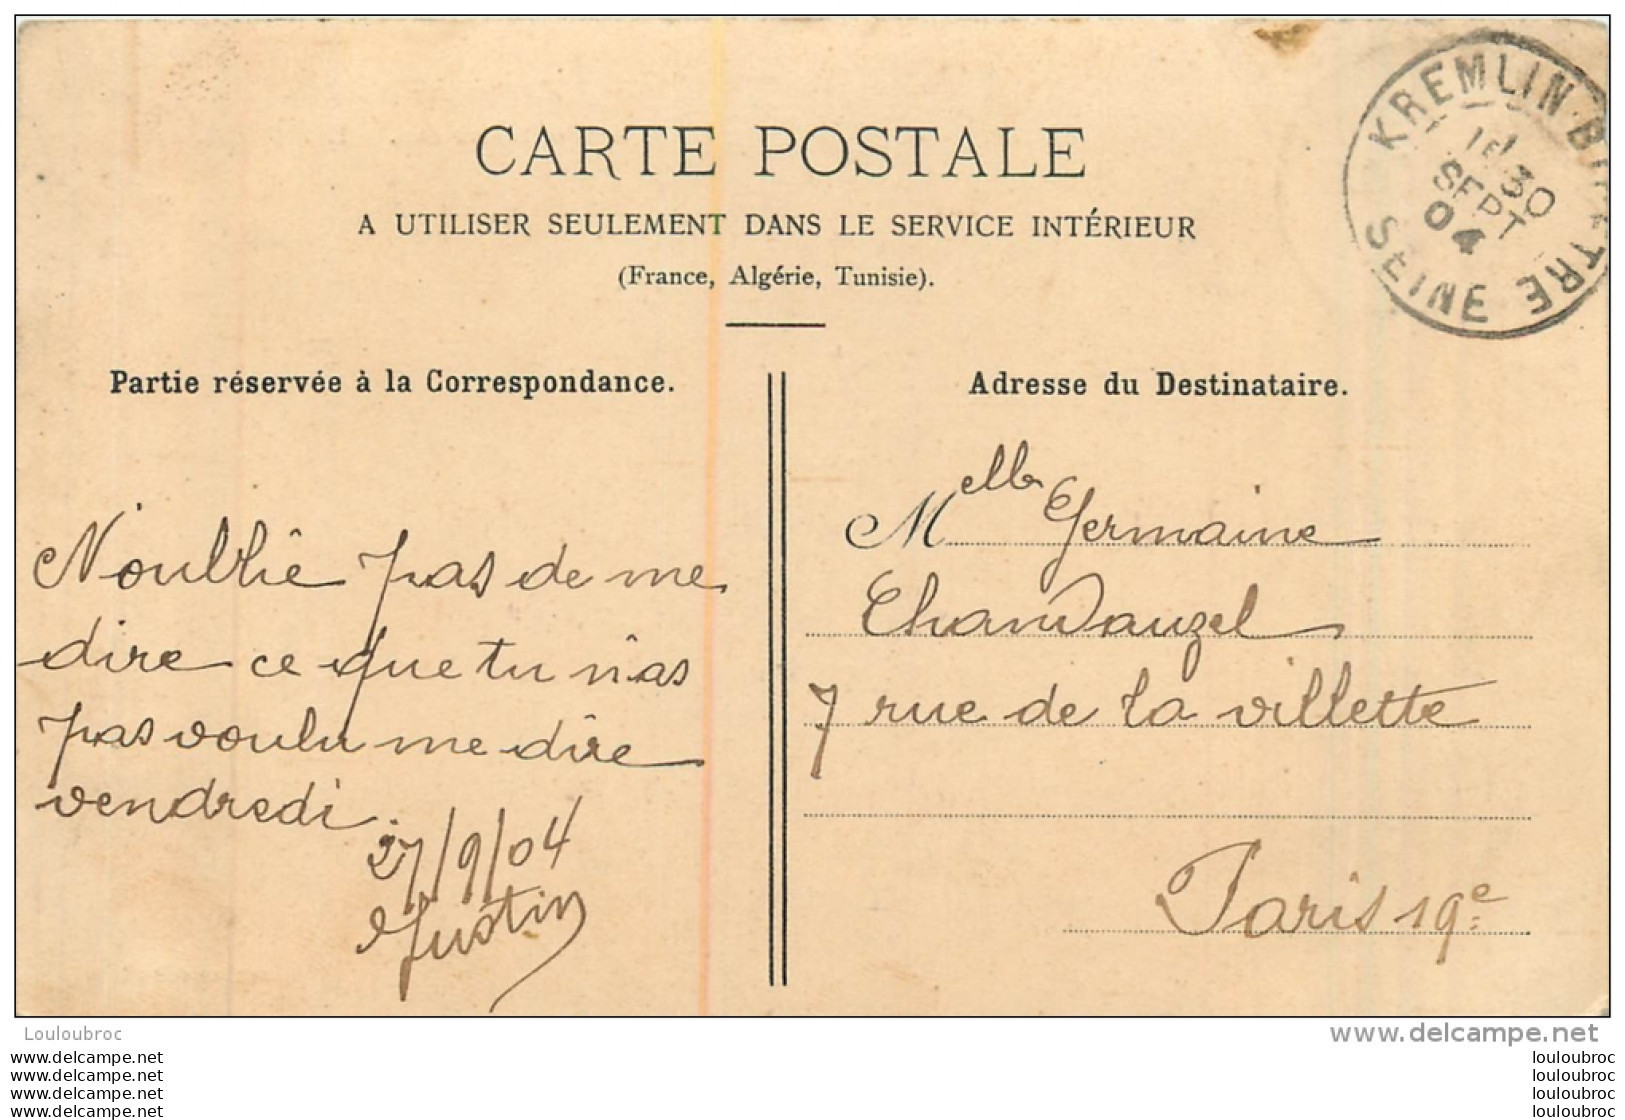 CARTE POSTALE
A UTILISER SEULEMENT DANS LE SERVICE INTÉRIEUR
(France, Algérie, Tunisie).
KREMLIN-BICETRE
30
SEPT
04
SEINE
Partie réservée à la Correspondance.
N'oublie pas de me
dire ce que tu n'as
pas voulu me dire
vendredi.
27/9/04
Justin
Adresse du Destinataire.
Melle Germaine
Chandauzel
7 rue de la villette
Paris 19e
Louloubroc
www.delcampe.net
www.delcampe.net
www.delcampe.net
www.delcampe.net
www.delcampe.net
louloubroc
louloubroc
louloubroc
louloubroc